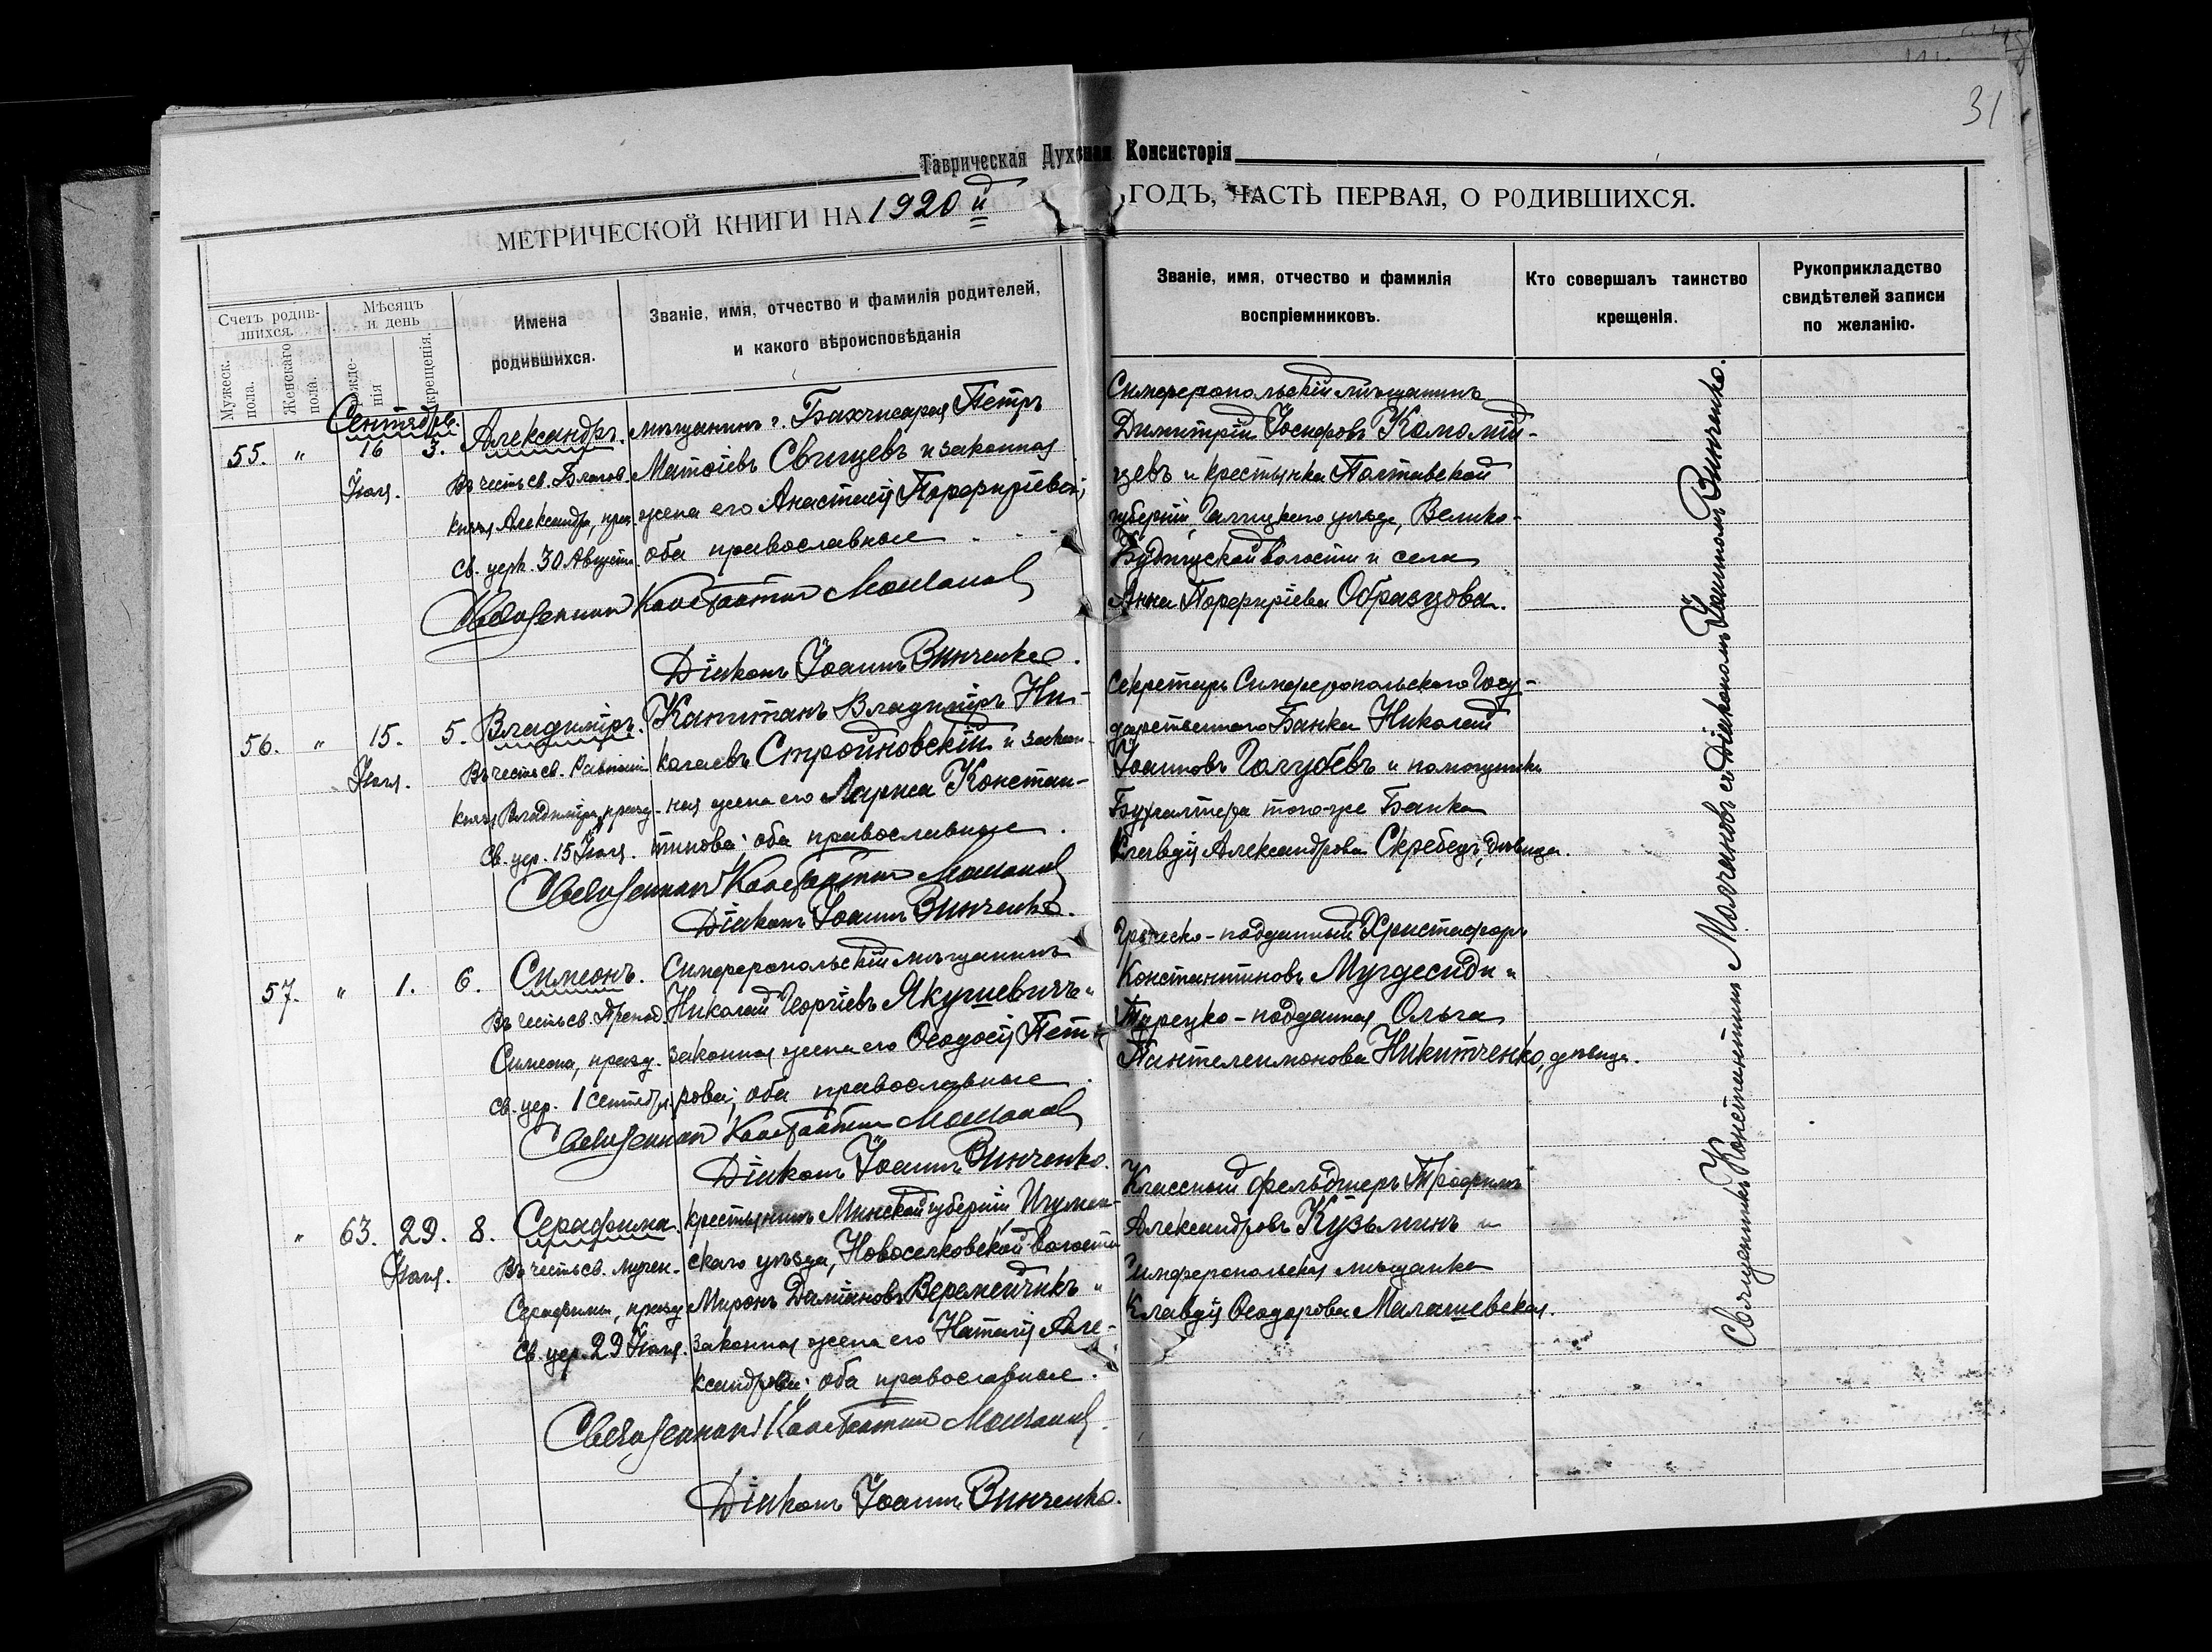 31
Таврическая Духовная Консисторія
МЕТРИЧЕСКОЙ КНИГИ НА 1920й ГОДЪ, ЧАСТЬ ПЕРВАЯ, О РОДИВШИХСЯ.
Счетъ родившихся.
Мужеск. пола.
Женскаго пола.
Мѣсяцъ и день
рожденія
крещенія.
Имена
родившихся.
Званіе, имя, отчество и фамилія родителей,
и какого вѣроисповѣданія
Званіе, имя, отчество и фамилія
воспріемниковъ.
Кто совершалъ таинство
крещенія.
Рукоприкладство
свидѣтелей записи
по желанію.
Сентябрь.
55. " 16 3.
Іюля.
Александръ.
Въ честь св. Благов.
князя Александра, праз.
св. церк. 30 Августа.
мѣщанинъ г. Бахчисарая Петръ
Матѳіевъ Свищевъ и законная
жена его Анастасія Порфиріевой;
оба православные
Священникъ Константинъ Молчановъ
Діаконъ Іоаннъ Винченко.
Симферопольскій мѣщанинъ
Димитрій Іосифовъ Коломій-
цевъ и крестьянка Полтавской
губерніи, Гадяцкого уѣзда, Велико-
Будищской волости и села
Анна Порфиріева Образцова.
56. " 15. 5.
Іюля.
Владиміръ.
Въ честь св. Равноап.
князя Владиміра, празд.
св. цер. 15 Іюля.
Капитанъ Владиміръ Ни-
колаевъ Стройновскій и закон-
ная жена его Лариса Констан-
тинова; оба православные.
Священникъ Константинъ Молчановъ
Діаконъ Іоаннъ Винченко.
Секретарь Симферопольского Госу-
дарственнаго Банка Николай
Іоанновъ Голубевъ и помощника
Бухгалтера того-же Банка
Клавдія Александрова Скребецъ, дѣвица.
57. " 1. 6.
Симеонъ.
Въ честь св. Препод.
Симеона, празд.
св. цер. 1 сентября.
Симферопольскій мѣщанинъ
Николай Георгіевъ Якушевичъ и
законная жена его Ѳеодосія Пет-
рова; оба православные.
Священникъ Константинъ Молчановъ
Діаконъ Іоаннъ Винченко.
Греческо-подданный Христофоръ
Константиновъ Мугдесиди и
Турецко-подданная Ольга
Пантелеимонова Никитченко, дѣвица.
" 63. 29. 8.
Іюля.
Серафима.
Въ честь св. мучен.
Серафимы, празд.
св. цер. 29 Іюля.
крестьянинъ Минской губерніи Игумен-
скаго уѣзда, Новоселковской волости
Миронъ Даміановъ Веремейчикъ и
законная жена его Наталія Але-
ксандрова; оба православные.
Священникъ Константинъ Молчановъ
Діаконъ Іоаннъ Винченко.
Классный фельдшеръ Трофимъ
Александровъ Кузьминъ и
Симферопольская мѣщанка
Клавдія Ѳеодорова Малашевская.
Священникъ Константинъ Молчановъ съ Діакономъ Іоанномъ Винченко.